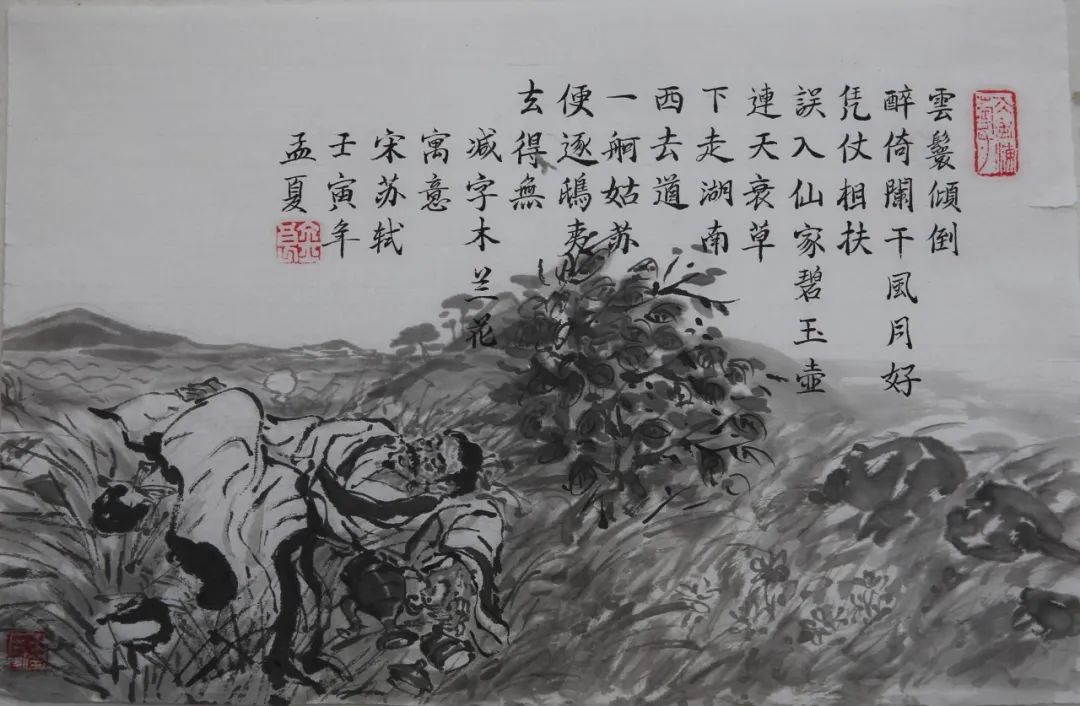 雲鬟傾倒
醉倚闌干風月好
凭仗相扶
誤入仙家碧玉壺
連天衰草
下走湖南
西去道
一舸姑苏
便逐鴟夷
去得無
减字木兰花
寓意
宋苏轼
壬寅年
孟夏